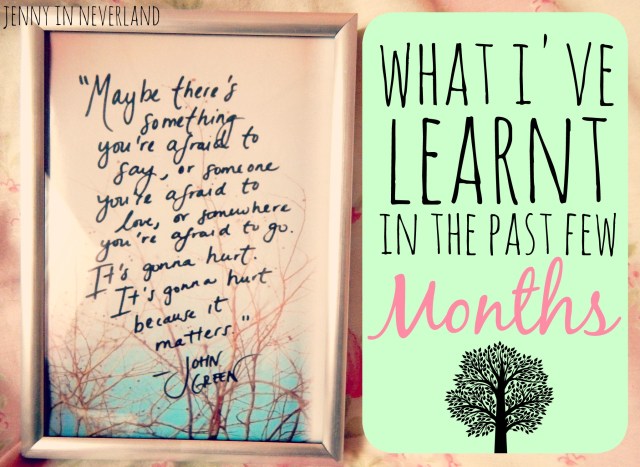 JENNY IN NEVERLAND
"Maybe there's
something
you're afraid to
say, or someone
you're afraid to
love, or somewhere
you're afraid to go.
It's gonna hurt.
It's gonna hurt
because it
matters."
- JOHN
GREEN
WHAT I'VE
LEARNT
IN THE PAST FEW
Months